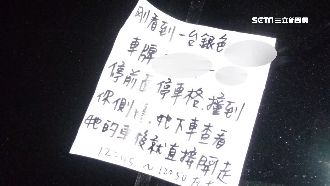 SETN 三立新聞網
剛看到一台銀色
車牌
停前面停車格,撞到
你側,他下車查看
他的車後就直接開走
12:45 ~ 12:50左右